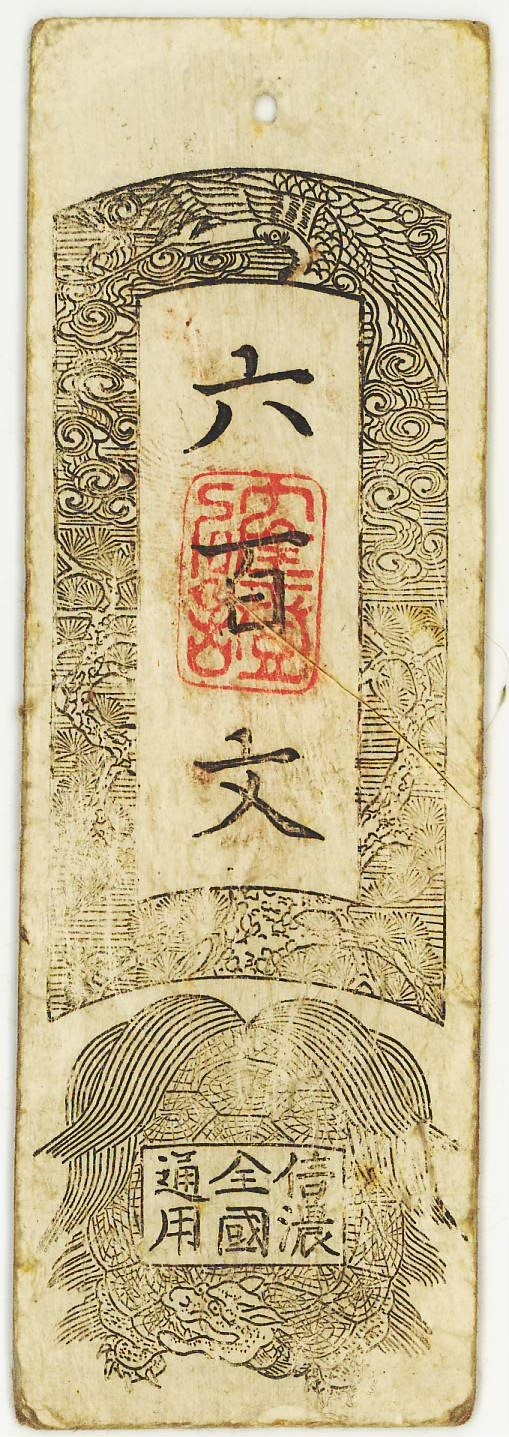 六百文
信濃
全國
通用